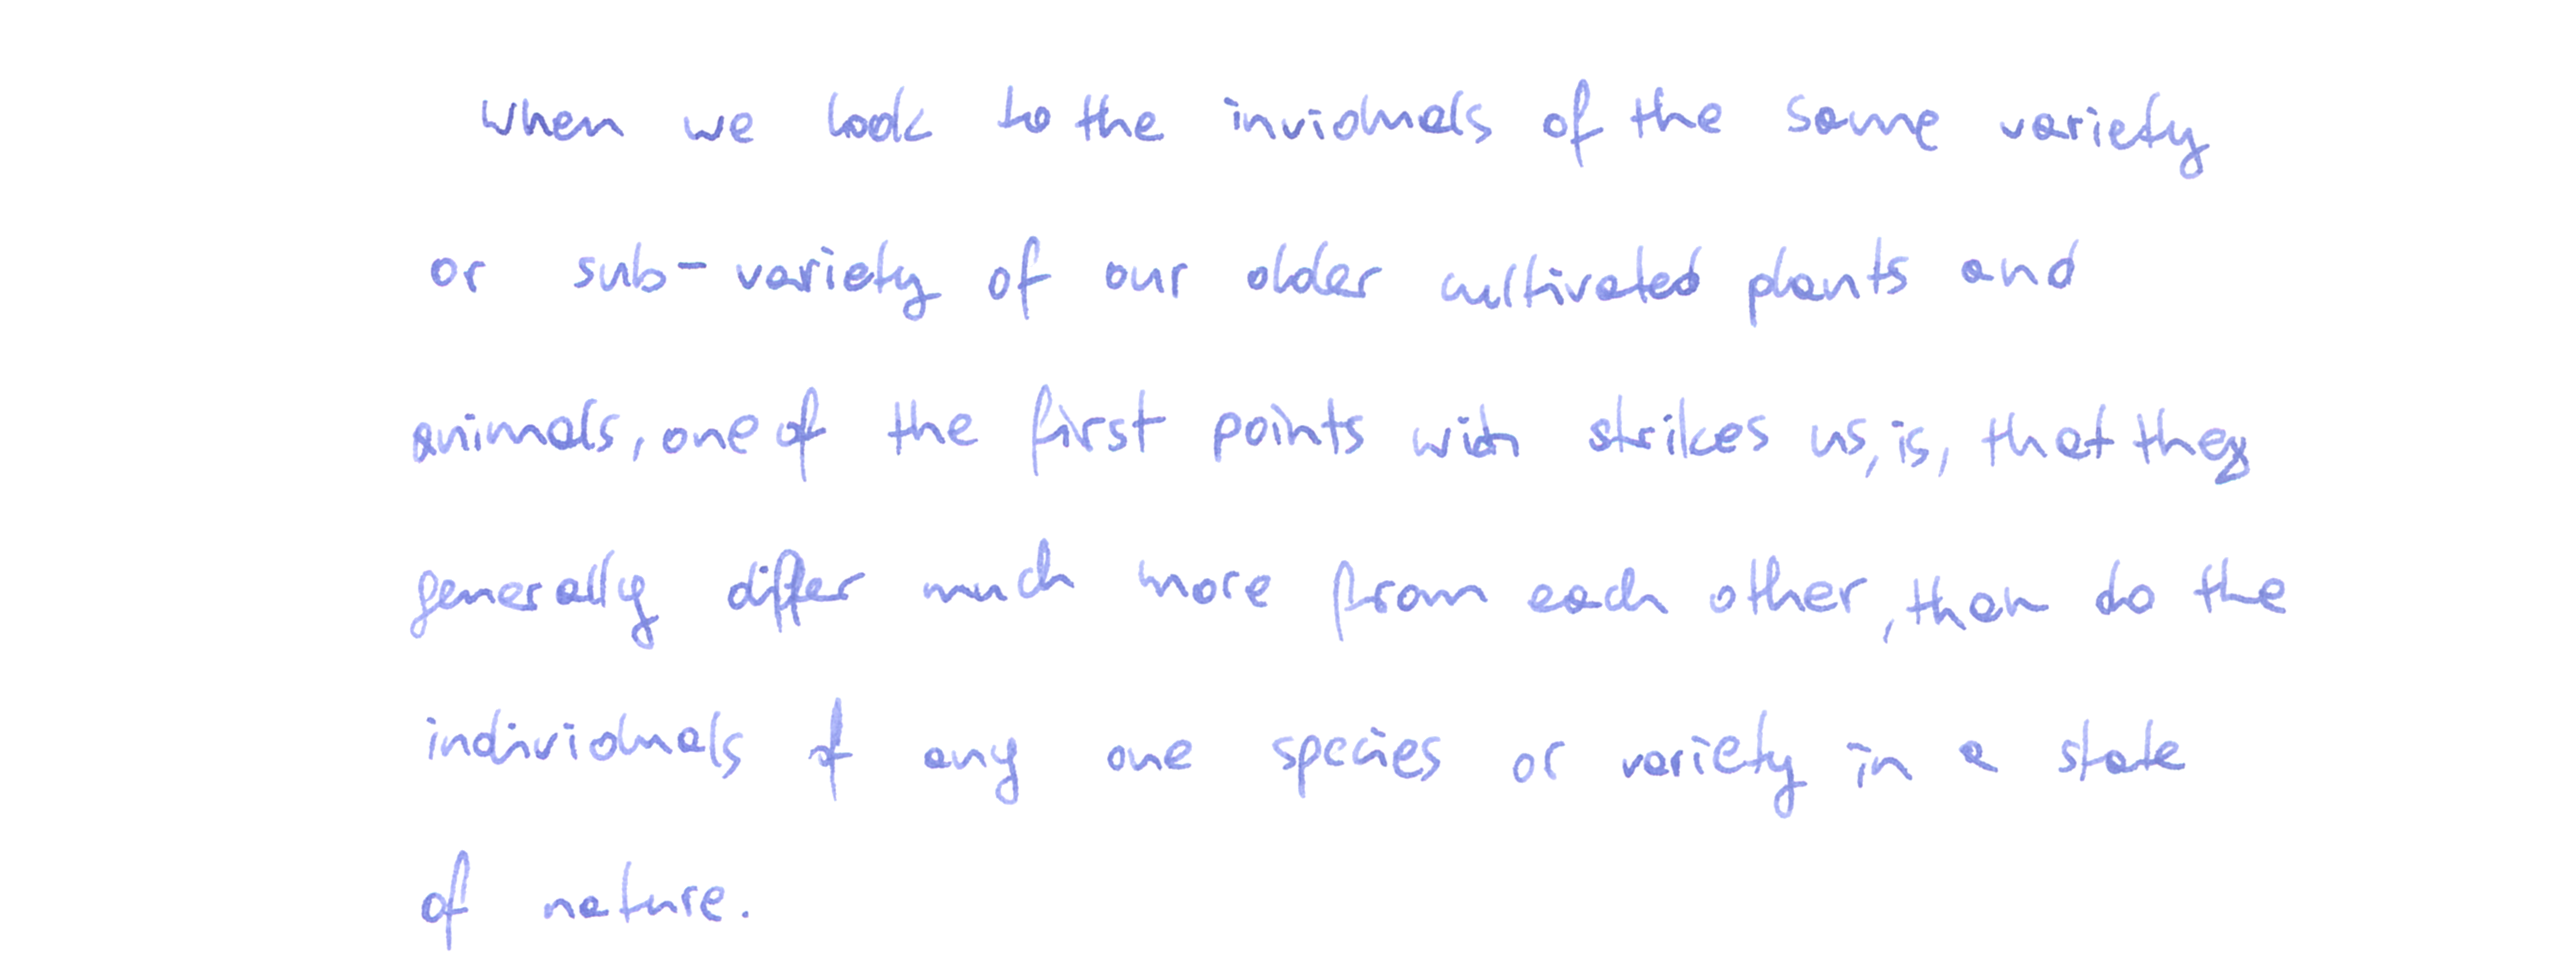 When we look to the inviduals of the same variety
or sub-variety of our older cultivated plants and
animals, one of the first points wich strikes us, is, that they
generally differ much more from each other, than do the
individuals of any one species or variety in a state
of nature.